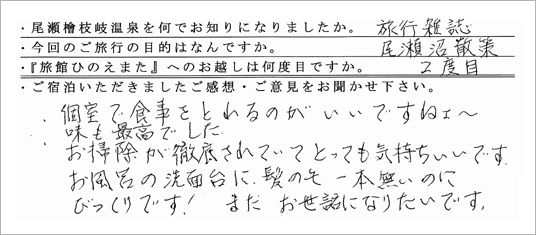 ・尾瀬檜枝岐温泉を何でお知りになりましたか。 旅行雑誌
・今回のご旅行の目的はなんですか。 尾瀬沼散策
・『旅館ひのえまた』へのお越しは何度目ですか。 2度目
・ご宿泊いただきましたご感想・ご意見をお聞かせ下さい。
・個室で食事をとれるのがいいですねェ〜
味も最高でした。
・お掃除が徹底されていてとっても気持ちいいです。
お風呂の洗面台に、髪の毛一本無いのに
びっくりです! また お世話になりたいです。